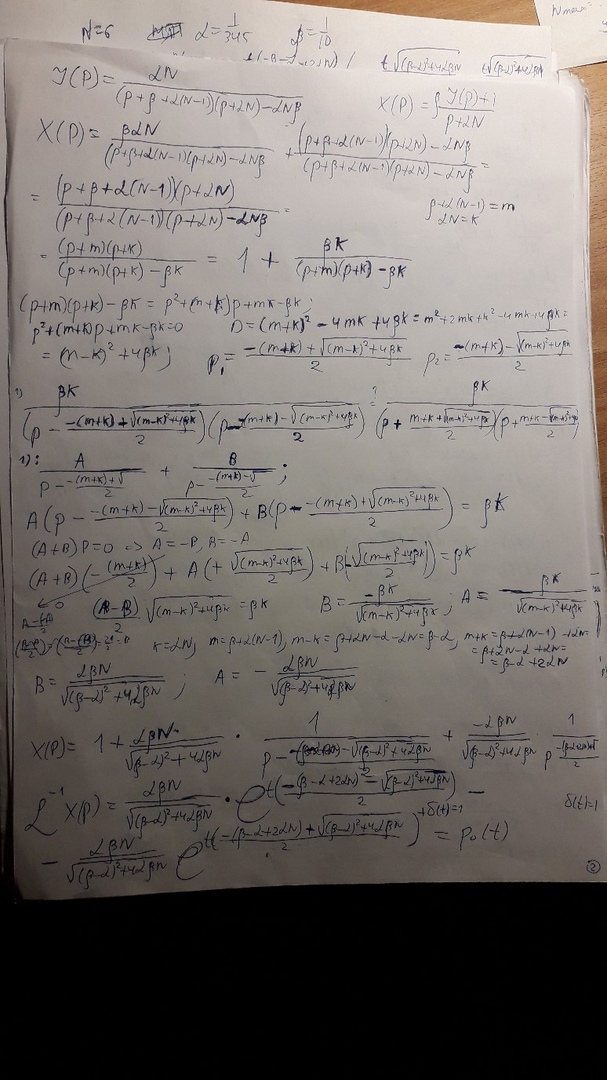 N=6 α=1/345 β=1/10
Y(p) = αN / ((p+β+α(N-1))(p+αN)-αNβ) X(p) = β Y(p)+1 / (p+αN)
X(p) = βαN / ((p+β+α(N-1))(p+αN)-αNβ) + ((p+β+α(N-1))(p+αN)-αNβ) / ((p+β+α(N-1))(p+αN)-αNβ) =
= (p+β+α(N-1))(p+αN) / ((p+β+α(N-1))(p+αN)-αNβ) = β+α(N-1) = m
αN=k
= (p+m)(p+k) / ((p+m)(p+k)-βk) = 1 + βk / ((p+m)(p+k)-βk)
(p+m)(p+k)-βk = p²+(m+k)p+mk-βk;
p²+(m+k)p+mk-βk=0 D=(m+k)²-4mk+4βk = m²+2mk+k²-4mk+4βk=
= (m-k)²+4βk; p₁= (-(m+k)+√((m-k)²+4βk)) / 2 p₂= (-(m+k)-√((m-k)²+4βk)) / 2
1) βk / ((p - (-(m+k)+√((m-k)²+4βk))/2)(p - (-(m+k)-√((m-k)²+4βk))/2)) =? βk / ((p + (m+k+√((m-k)²+4βk))/2)(p + (m+k-√((m-k)²+4βk))/2))
1): A / (p - (-(m+k)+√)/2) + B / (p - (-(m+k)-√)/2);
A(p - (-(m+k)-√((m-k)²+4βk))/2) + B(p - (-(m+k)+√((m-k)²+4βk))/2) = βk
(A+B)p=0 => A=-B, B=-A
(A+B)(-(m+k)/2) + A(+√((m-k)²+4βk)/2) + B(-√((m-k)²+4βk)/2) = βk
(A-B)/2 √((m-k)²+4βk) = βk B = -βk / √((m-k)²+4βk); A = βk / √((m-k)²+4βk)
k=αN, m=β+α(N-1), m-k=β+αN-α-αN=β-α, m+k=β+α(N-1)+αN=
=β+αN-α+αN=
=β-α+2αN
B = αβN / √((β-α)²+4αβN); A = - αβN / √((β-α)²+4αβN)
X(p) = 1 + αβN / √((β-α)²+4αβN) · 1 / (p - -√((β-α)²+4αβN)/2) + -αβN / √((β-α)²+4αβN) · 1 / p
L⁻¹X(p) = αβN / √((β-α)²+4αβN) · e^t(-(β-α+2αN)-√((β-α)²+4αβN))/2 - δ(t)=1
- αβN / √((β-α)²+4αβN) e^t(-(β-α+2αN)+√((β-α)²+4αβN))/2 +δ(t)=1 = p₀(t)
2